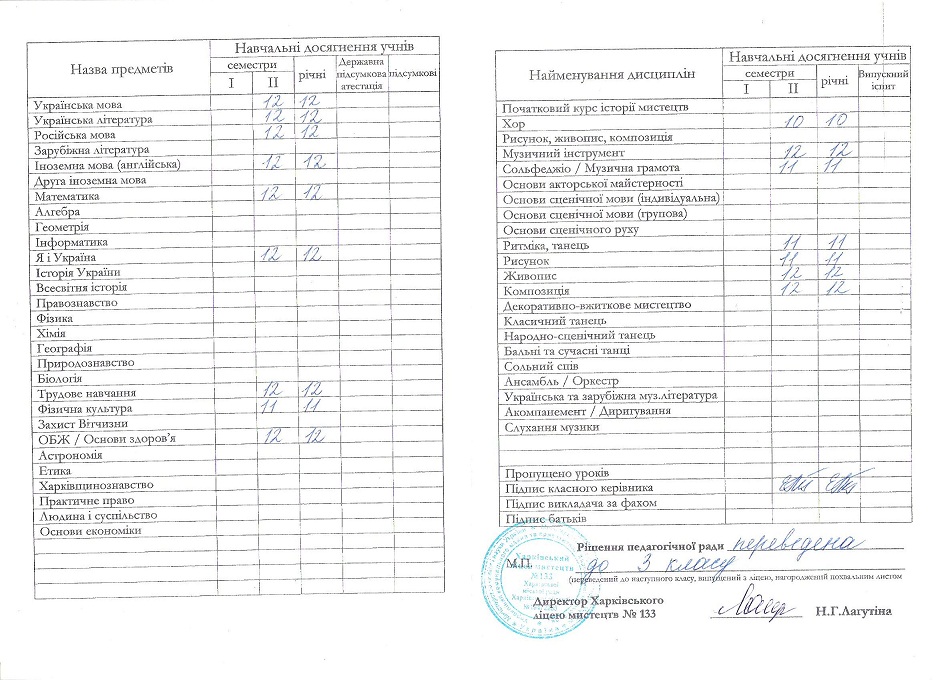 Назва предметів
Навчальні досягнення учнів
семестри
I II
річні
Державна підсумкова атестація
підсумкові
Українська мова 12 12
Українська література 12 12
Російська мова 12 12
Зарубіжна література
Іноземна мова (англійська) 12 12
Друга іноземна мова
Математика 12 12
Алгебра
Геометрія
Інформатика
Я і Україна 12 12
Історія України
Всесвітня історія
Правознавство
Фізика
Хімія
Географія
Природознавство
Біологія
Трудове навчання 12 12
Фізична культура 11 11
Захист Вітчизни
ОБЖ / Основи здоров'я 12 12
Астрономія
Етика
Харківщинознавство
Практичне право
Людина і суспільство
Основи економіки
Найменування дисциплін
Навчальні досягнення учнів
семестри
I II
річні
Випускний іспит
Початковий курс історії мистецтв
Хор 10 10
Рисунок, живопис, композиція
Музичний інструмент 12 12
Сольфеджіо / Музична грамота 11 11
Основи акторської майстерності
Основи сценічної мови (індивідуальна)
Основи сценічної мови (групова)
Основи сценічного руху
Ритміка, танець 11 11
Рисунок 11 11
Живопис 12 12
Композиція 12 12
Декоративно-вжиткове мистецтво
Класичний танець
Народно-сценічний танець
Бальні та сучасні танці
Сольний спів
Ансамбль / Оркестр
Українська та зарубіжна муз.література
Акомпанемент / Диригування
Слухання музики
Пропущено уроків
Підпис класного керівника
Підпис викладача за фахом
Підпис батьків
Рішення педагогічної ради переведена
М.П. до 3 класу
(переведений до наступного класу, випущений з ліцею, нагороджений похвальним листом
Директор Харківського
ліцею мистецтв № 133 Н.Г.Лагутіна
Харківський
ліцей мистецтв
№133